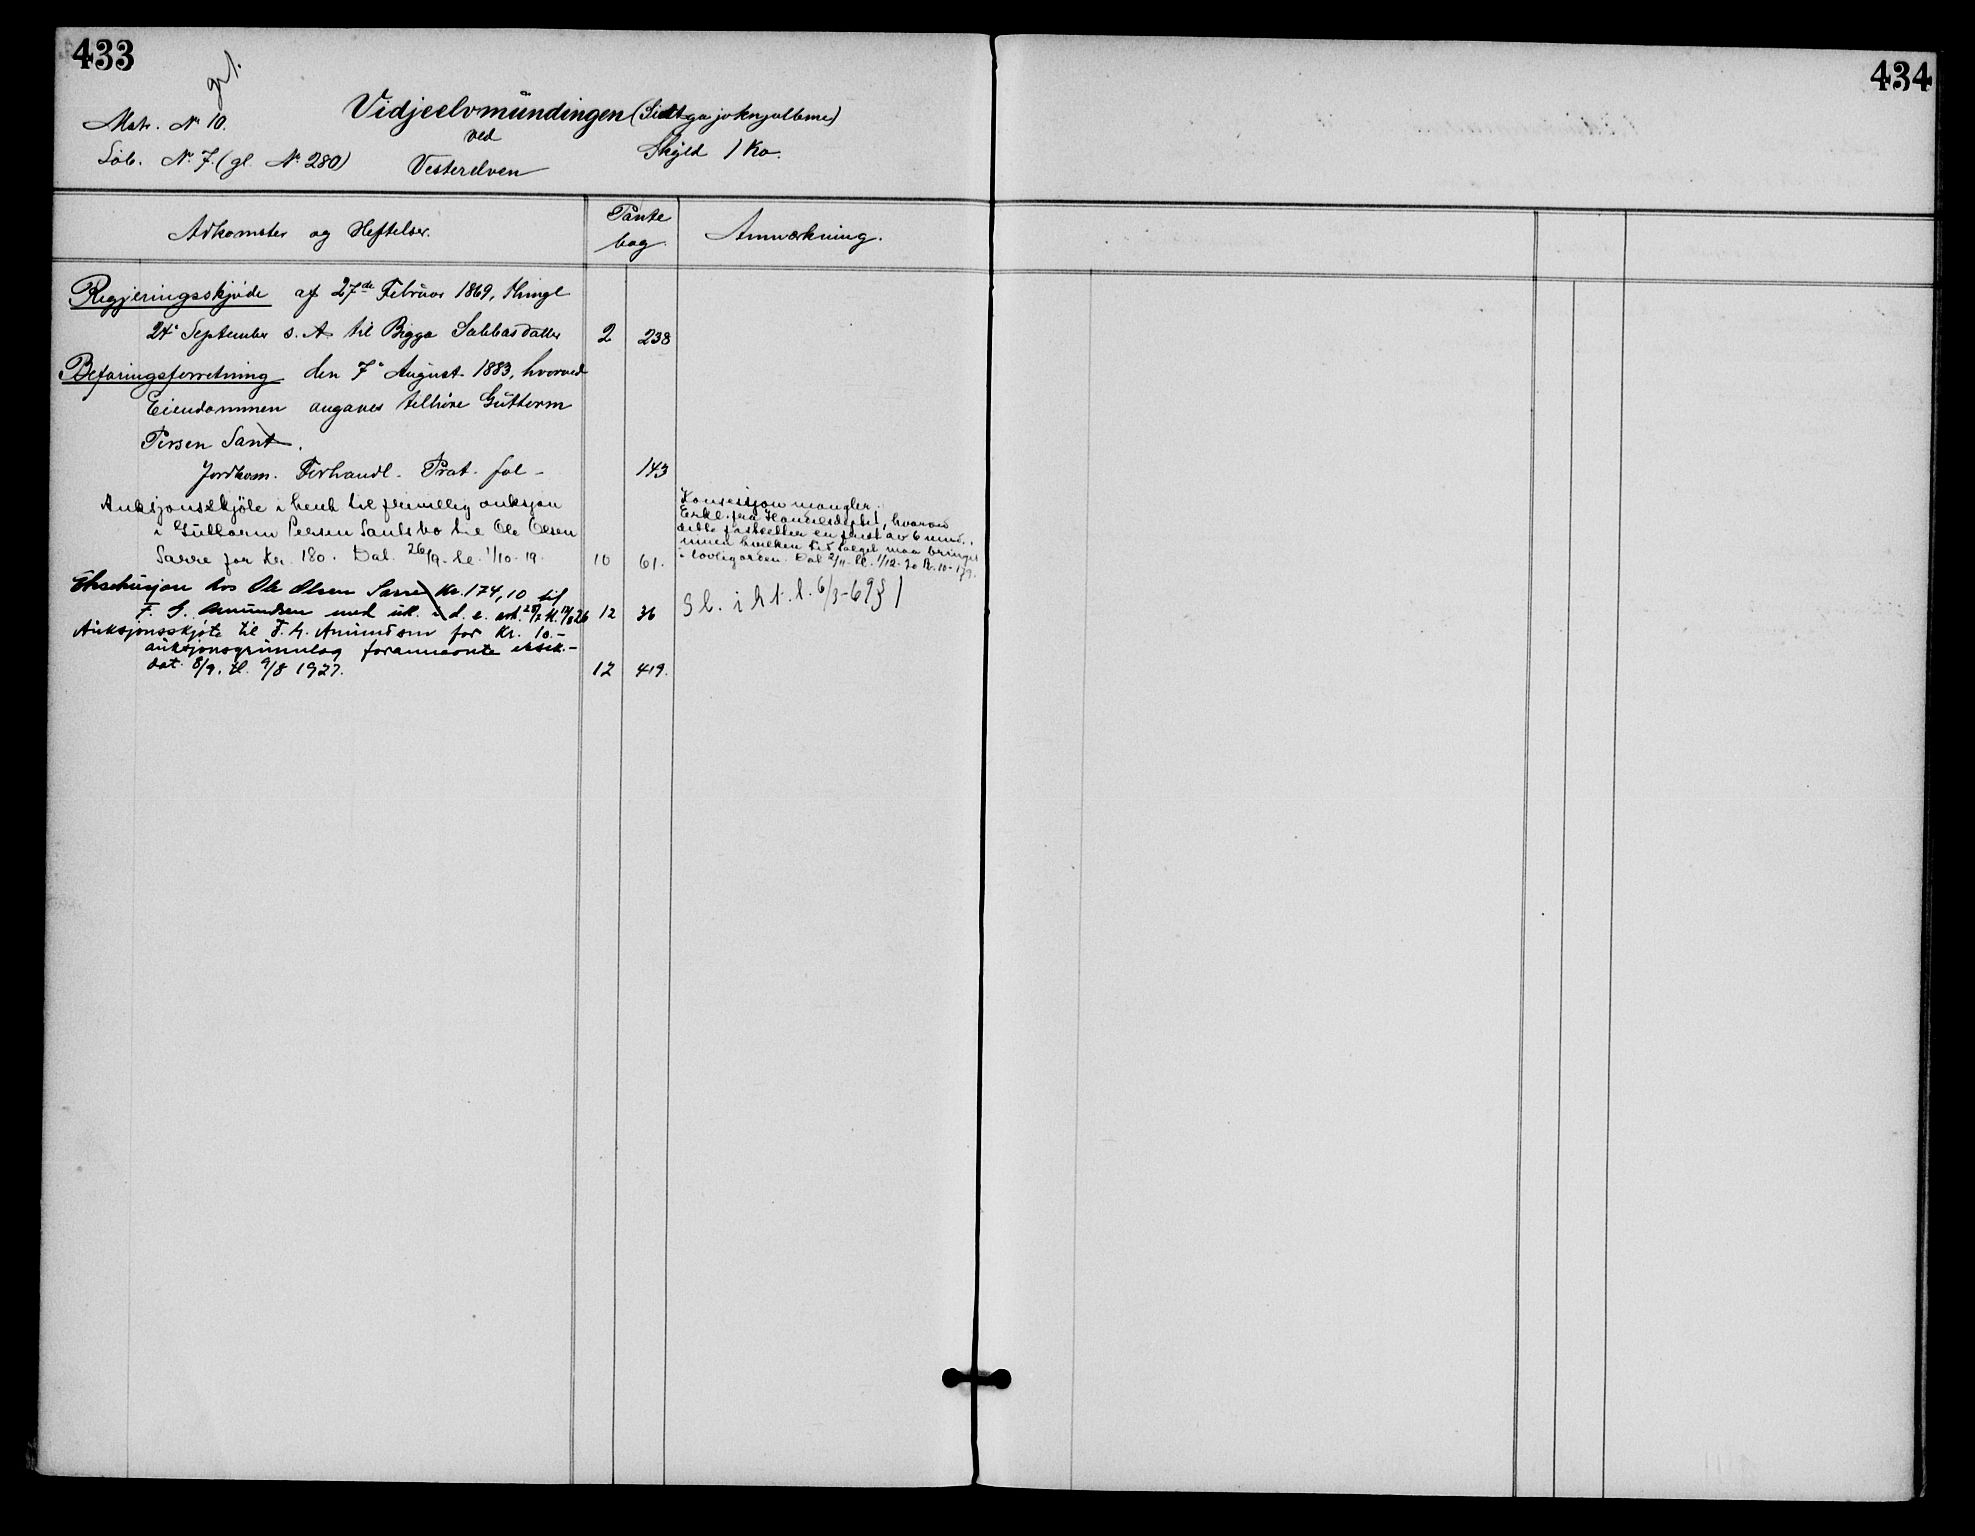 433
434
gd.
Matr. № 10.
Vidjeelvmündingen (Sidtgajoknjalbme)
ved
Löb. № 7. (gl. № 280)
Vesterelven
Skyld 1 Ko.
Adkomster og Heftelser.
Pante
bog.
Anmærkning.
Regjeringsskjöde af 27de Februar 1869, thingl
24' September s. A. til Bigga Sabbasdatter 2 238
Befaringsforretning den 7' August 1883, hvorved
Eiendommen angaves tilhöre Güttorm
Persen Sant.
Jordkom. Forhandl. Prot. fol - 143
Auksjonsskjöte i henh til frivillig auksjon
i Guttorm Persen Sants bo til Ole Olsen
Sarre for kr. 180. Dat. 26/9. tl. 1/10-19. 10 61.
Konsesjon mangler.
Erkl. fra Handelsdept, hvorav
dette fastsetter en frist av 6 mnd.,
innen hvilken tid salget maa bringes
i lovlig orden. Dat 2/11. tl. 1/12-20 B. 10-179.
Eksekusjon hos Ole Olsen Sarre Kr. 174,10 til
F. L. Amundsen med utl. i d. e. avh. 28/7 tl. 14/8 26 12 36
Sl. i h t. l. 6/3-69 § 1
Auksjonsskjöte til F. L. Amundsen for Kr. 10.-
auksjonsgrunnlag forannevnte eksek.-
dat. 8/9. tl. 9/8 1927. 12 419.